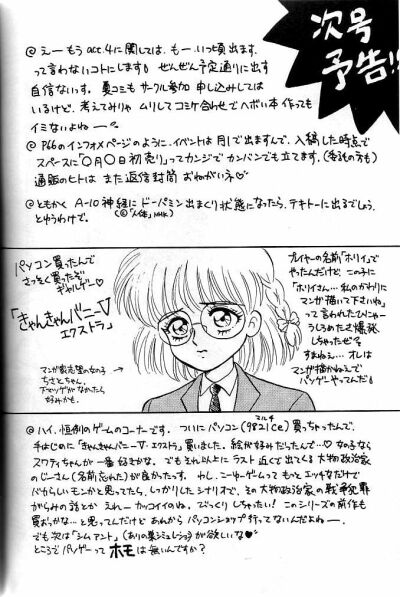 次号
予告!!
@ えー もう act.4に関しては、もー いつ頃出ます、
って言わないコトにします! ぜんぜん予定通りに出す
自信ないっす。夏コミも サークル参加 申し込みしては
いるけど、考えてみりゃ ムリしてコミケ合わせで ヘボい本 作っても
イミないよねー
@ P66のインフォメページのように、イベントは 月1で出ますんで、入稿した時点で
スペースに「〇月〇日初売り」ってカンジで カンバンでも立てます。(委託の方も)
通販のヒトは また返信封筒 おねがいネ♡
@ ともかく A-10神経に ドーパミン出まくり状態になったら、テキトーに出るでしょう。
とゆうわけで。
(©「人体」NHK)
パソコン買ったんで
さっそく買ったぞ
ギャルゲー♡
「きゃんきゃんバニーV
エクストラ」
マンガ家志望の女の子
ちさとちゃん。
下ツゲがなかったら
好みかも。
プレイヤーの名前「ホリイ」で
やったんだけど この子に
「ホリイさん…私のかわりに
マンガ描いて下さいね」
って言われたひにゃー
うしろめたさ爆発
しちゃったぜ!
すまねえ… オレは
マンガ描かねえで
パソゲーやってんだ!
@ ハイ、恒例のゲームのコーナーです。ついに パソコン(9821Ce)買っちゃったんで、
マルチ
手はじめに「きゃんきゃんバニーV・エクストラ」買いました。絵が好みだったんで…♡ なのるなら
スワティちゃんが 一番 好きかな。でもそれ以上に ラスト近くで出てくる 大物政治家
のじーさん(名前忘れた)が良かったっす。わし、こーゆーゲームって もっと エッチなだけで
バカらしいモンかと思ってたら、しっかりしたシナリオで、その大物政治家の戦争犯罪
がらみの話とか えれー カッコイイのね。びっくりしちゃったい! このシリーズの前作も
買おっかな…と思ってんだけど あれから パソコンショップ 行ってないんだよねー
でも次は「シムアント」(ありの巣シミュレーション)が欲しいな♡
ところで パソゲーって ホモ は無いんですか?